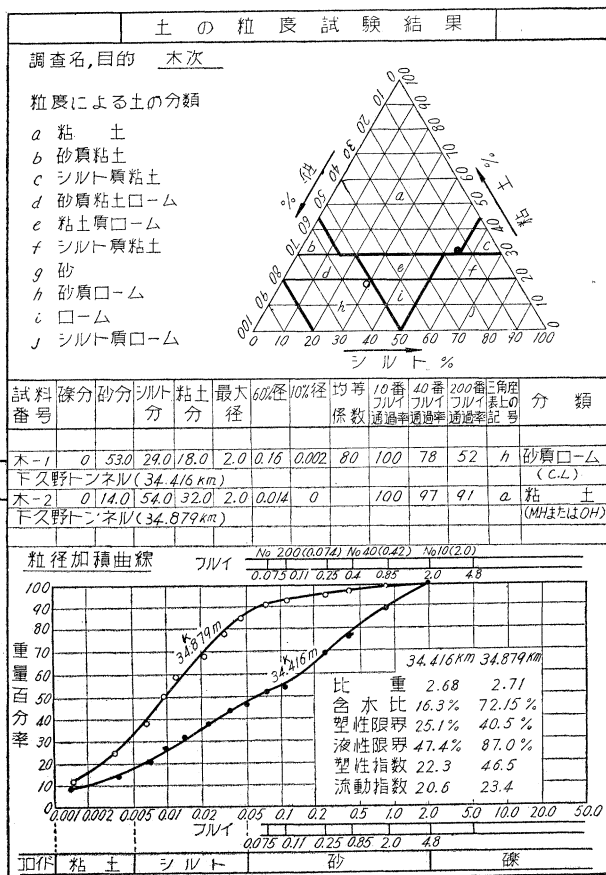 土の粒度試験結果
調査名,目的 木次
粒度による土の分類
a 粘土
b 砂質粘土
c シルト質粘土
d 砂質粘土ローム
e 粘土質ローム
f シルト質粘土
g 砂
h 砂質ローム
i ローム
j シルト質ローム
砂 %
粘土 %
0 10 20 30 40 50 60 70 80 90 100
シルト %
a
b c
d e f
h i j
試料番号 礫分 砂分 シルト分 粘土分 最大径 60%径 10%径 均等係数 10番フルイ通過率 40番フルイ通過率 200番フルイ通過率 三角座表上の記号 分類
木-1 0 53.0 29.0 18.0 2.0 0.16 0.002 80 100 78 52 h 砂質ローム
下久野トンネル(34.416km) (C.L)
木-2 0 14.0 54.0 32.0 2.0 0.014 0 100 97 91 a 粘土
下久野トンネル(34.879km) (MHまたはOH)
粒径加積曲線 フルイ No 200(0.074) No 40(0.42) No10(2.0)
0.075 0.11 0.25 0.4 0.85 2.0 4.8
重量百分率
100
90
80
70
60
50
40
30
20
10
0
34.879Km
34.416Km
34.416km 34.879km
比重 2.68 2.71
含水比 16.3% 72.15%
塑性限界 25.1% 40.5%
液性限界 47.4% 87.0%
塑性指数 22.3 46.5
流動指数 20.6 23.4
0.001 0.002 0.005 0.01 0.02 0.05 0.1 0.2 0.5 1.0 2.0 5.0 10.0 20.0 50.0
フルイ
0.075 0.11 0.25 0.85 2.0 4.8
コロイド 粘土 シルト 砂 礫